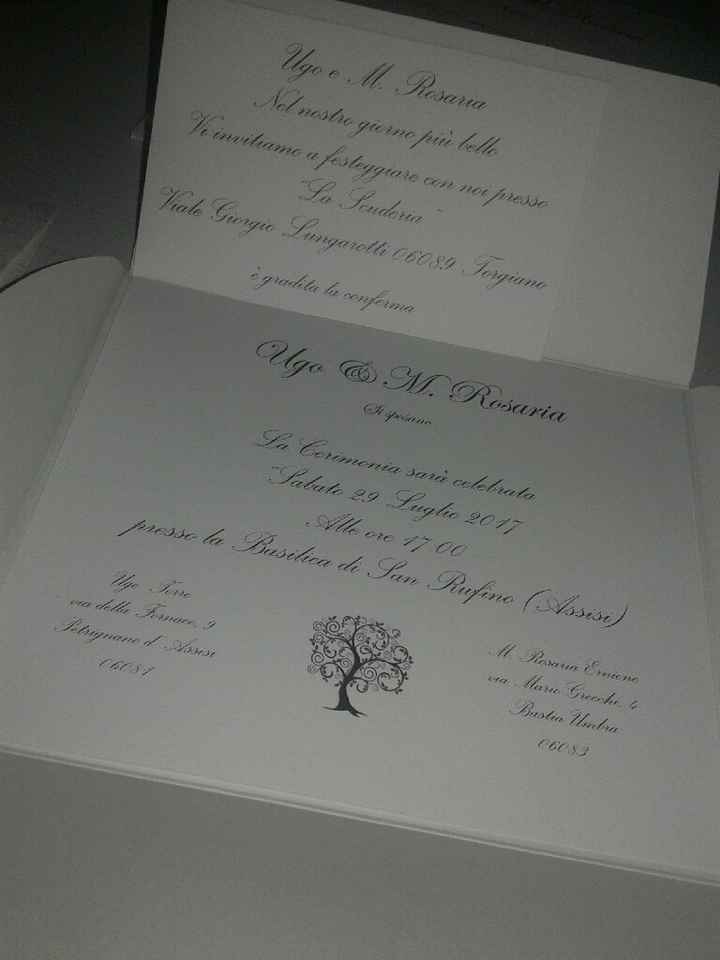 Ugo e M. Rosaria
Nel nostro giorno più bello
Vi invitiamo a festeggiare con noi presso
"La Scuderia"
Viale Giorgio Lungarotti 06089 Torgiano
è gradita la conferma
Ugo & M. Rosaria
Si sposano
La Cerimonia sarà celebrata
Sabato 29 Luglio 2017
Alle ore 17 00
presso la Basilica di San Rufino (Assisi)
Ugo Torre
via della Fornace, 9
Petrignano d' Assisi
06081
M. Rosaria
via Mario Grecchi, 4
Bastia Umbra
06083